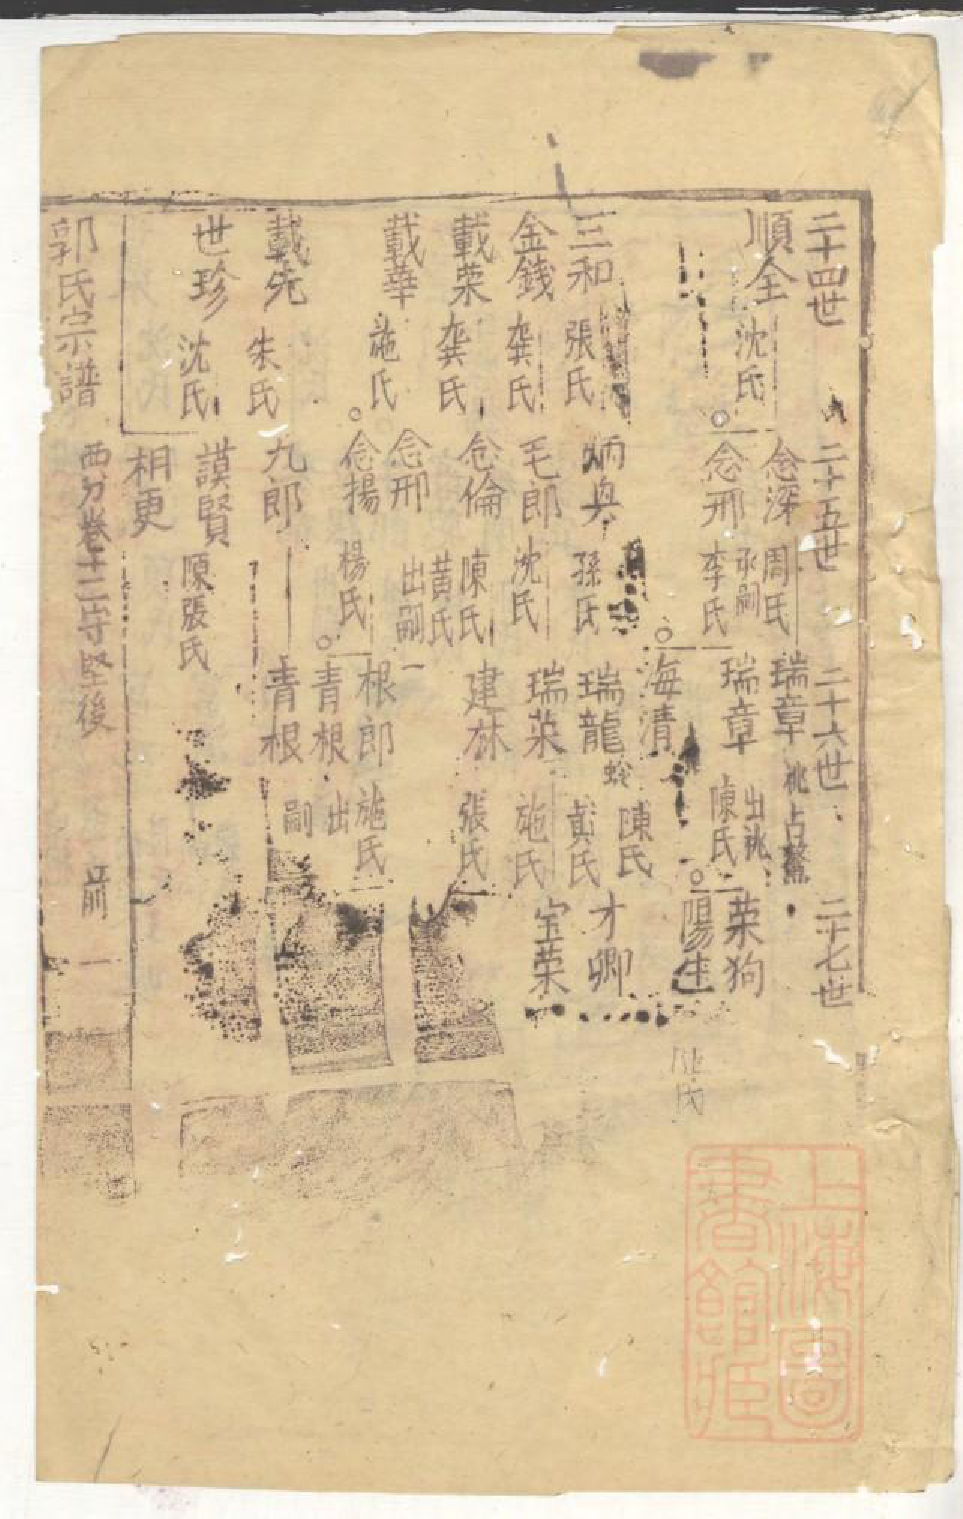 二十四世 二十五世 二十六世 二十七世
順全 沈氏 念深 周氏 瑞章 祧占鰲
念邢 承嗣 李氏 瑞章 出祧 陳氏 荣狗
陽生
海清 陳氏 才卿
三和 張氏 炳 孫氏 瑞龍 黃氏
金錢 龚氏 毛郎 沈氏 瑞荣 施氏 宝荣
載荣 龚氏 念倫 陳氏 黄氏 建林 張氏
載華 施氏 念邢 出嗣
念揚 楊氏 根郎 施氏
青根 出嗣
載先 朱氏 九郎 青根
世珍 沈氏 謨賢 陳張氏
相更
郭氏宗譜 西分卷十二守堅後 前 一
上海圖書館藏